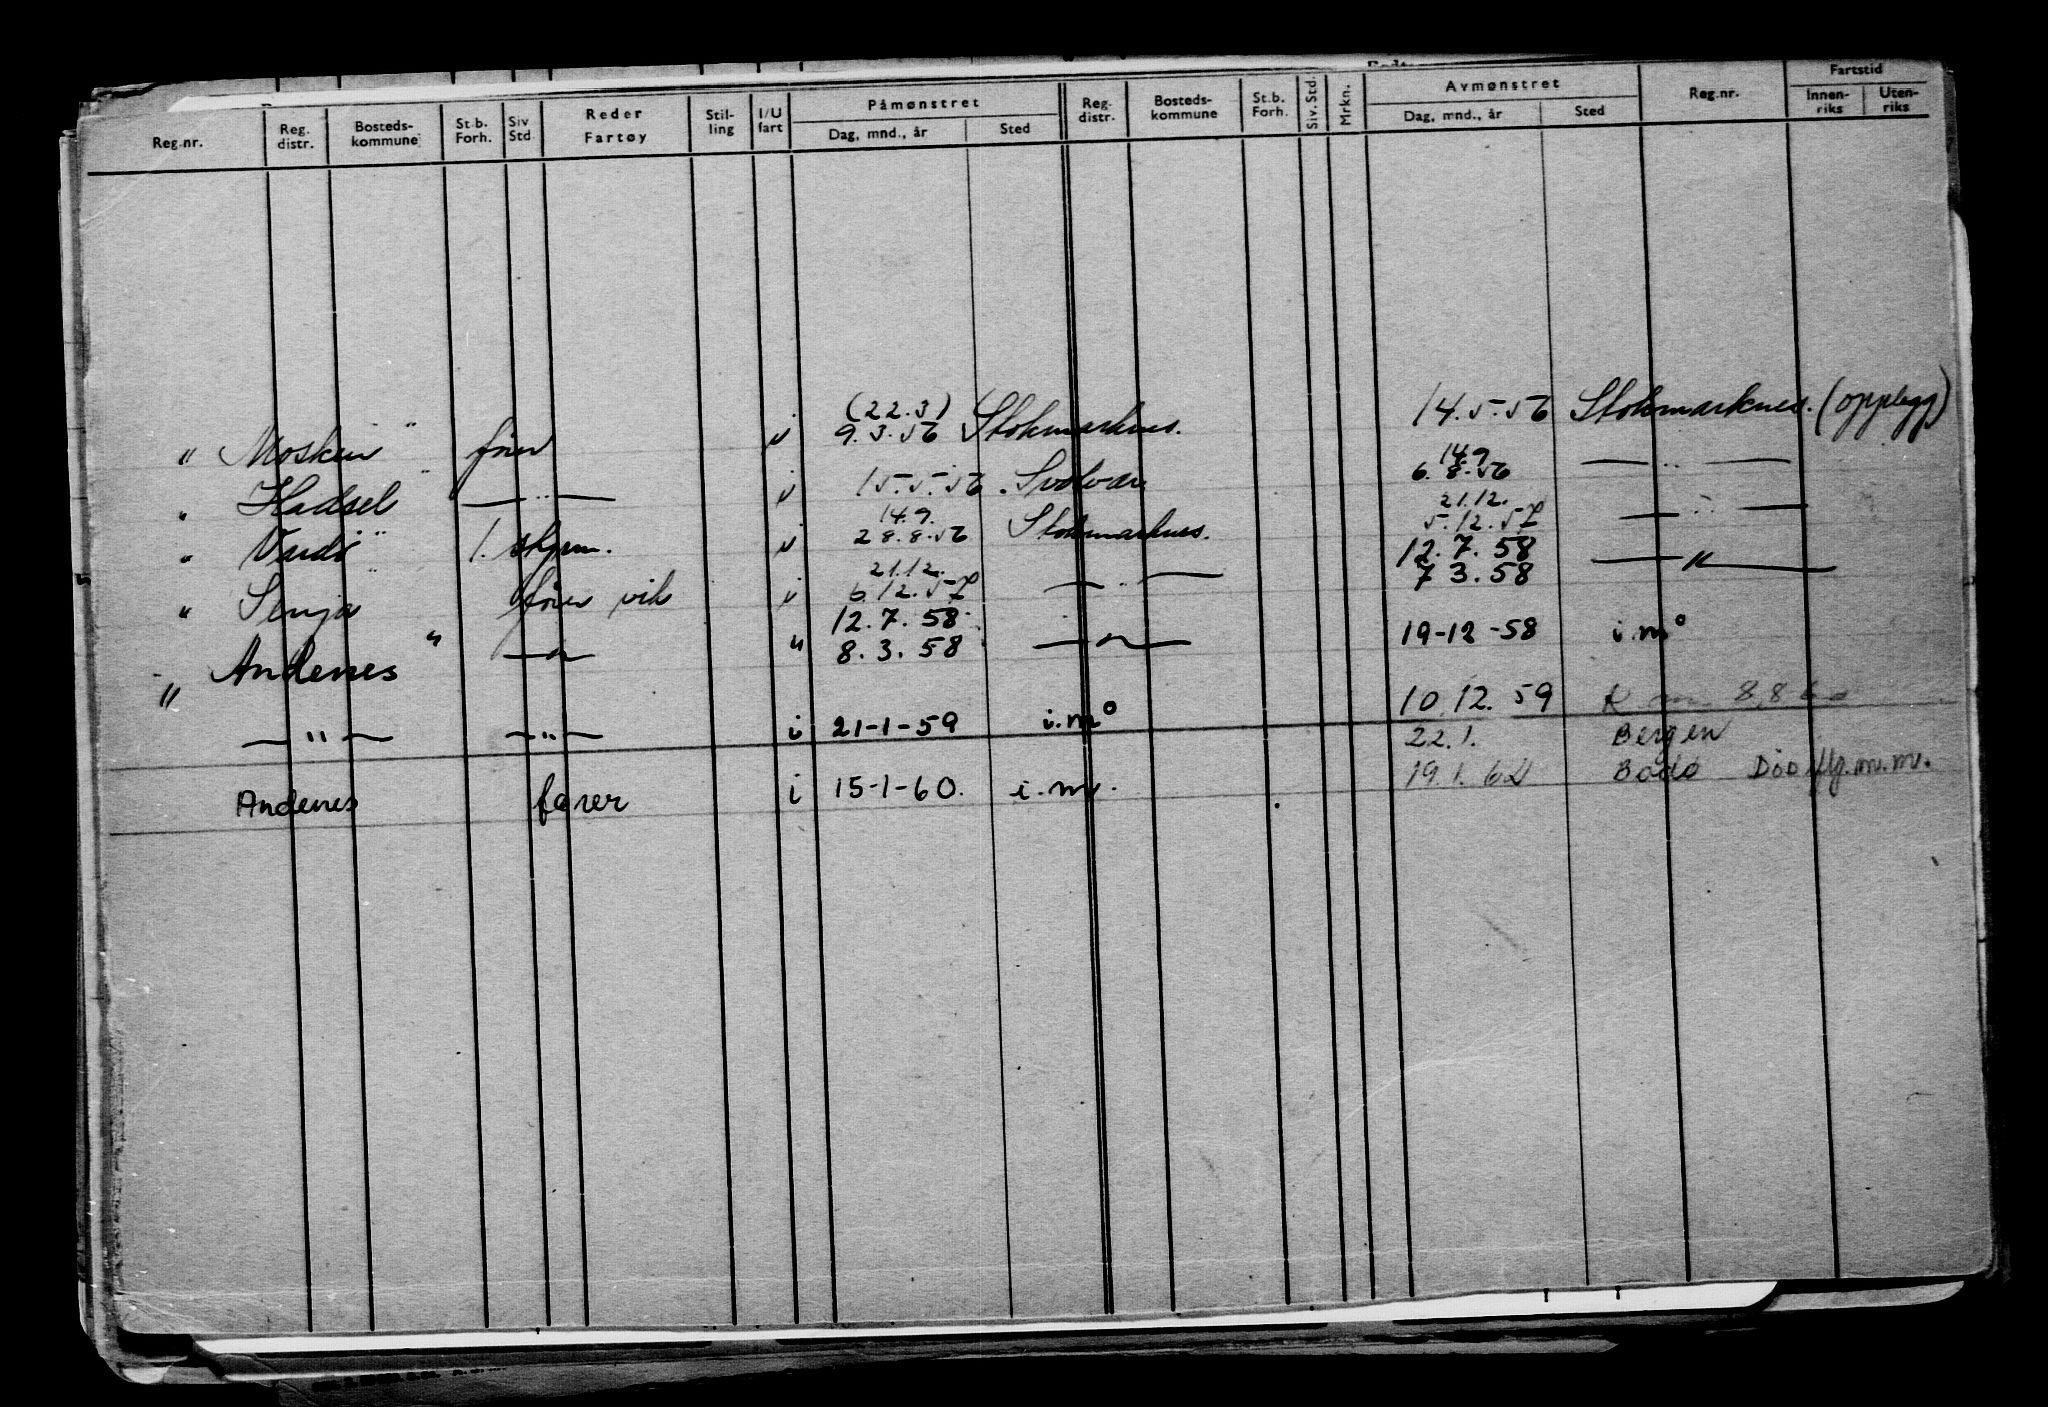 Reg.nr. Reg. distr. Bosteds-kommune St.b. Forh. Siv Std Reder Fartøy Stil-ling I/U fart Påmønstret Dag, mnd., år Sted Reg. distr. Bosteds-kommune St.b. Forh. Siv. Std. Mrkn. Avmønstret Dag, mnd., år Sted Reg.nr. Fartstid Innen-riks Uten-riks
(22.3) 14.5.56 Stokmarknes. (opplegg)
" Mosken " fører i 9.3.56 Stokmarknes.
14.9
" Hadsel " — " — i 15.5.56 Svolvær 6.8.56 — " —
14.9. 21.12.
" Vardö " 1. skjem. i 28.8.56 Stokmarknes. 5.12.57 — " —
21.12. 12.7.58
" Senja " fører vik i 6.12.57 — " — 7 3.58 — " —
12.7.58
" Andenes " — " — " 8.3.58 — " — 19-12-58 i.m°
— " — — " — i 21-1-59 i.m° 10.12.59
22.1. Bergen
Andenes fører i 15-1-60. i.m. 19.1.62 Bodø